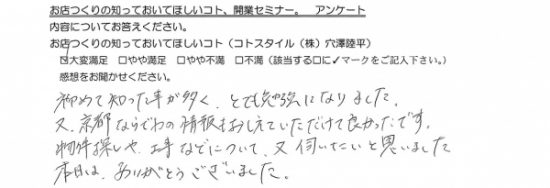 お店つくりの知っておいてほしいコト、開業セミナー。　アンケート
内容についてお答えください。
お店つくりの知っておいてほしいコト（コトスタイル（株）穴澤陸平）
☑大変満足　□やや満足　□やや不満　□不満（該当する□に✓マークをご記入下さい。）
感想をお聞かせください。
初めて知った事が多く、とても勉強になりました。
又、京都ならでわの情報もおしえていただけて良かったです。
物件探しや、工事などについて、又伺いたいと思いました
本日は、ありがとうございました。